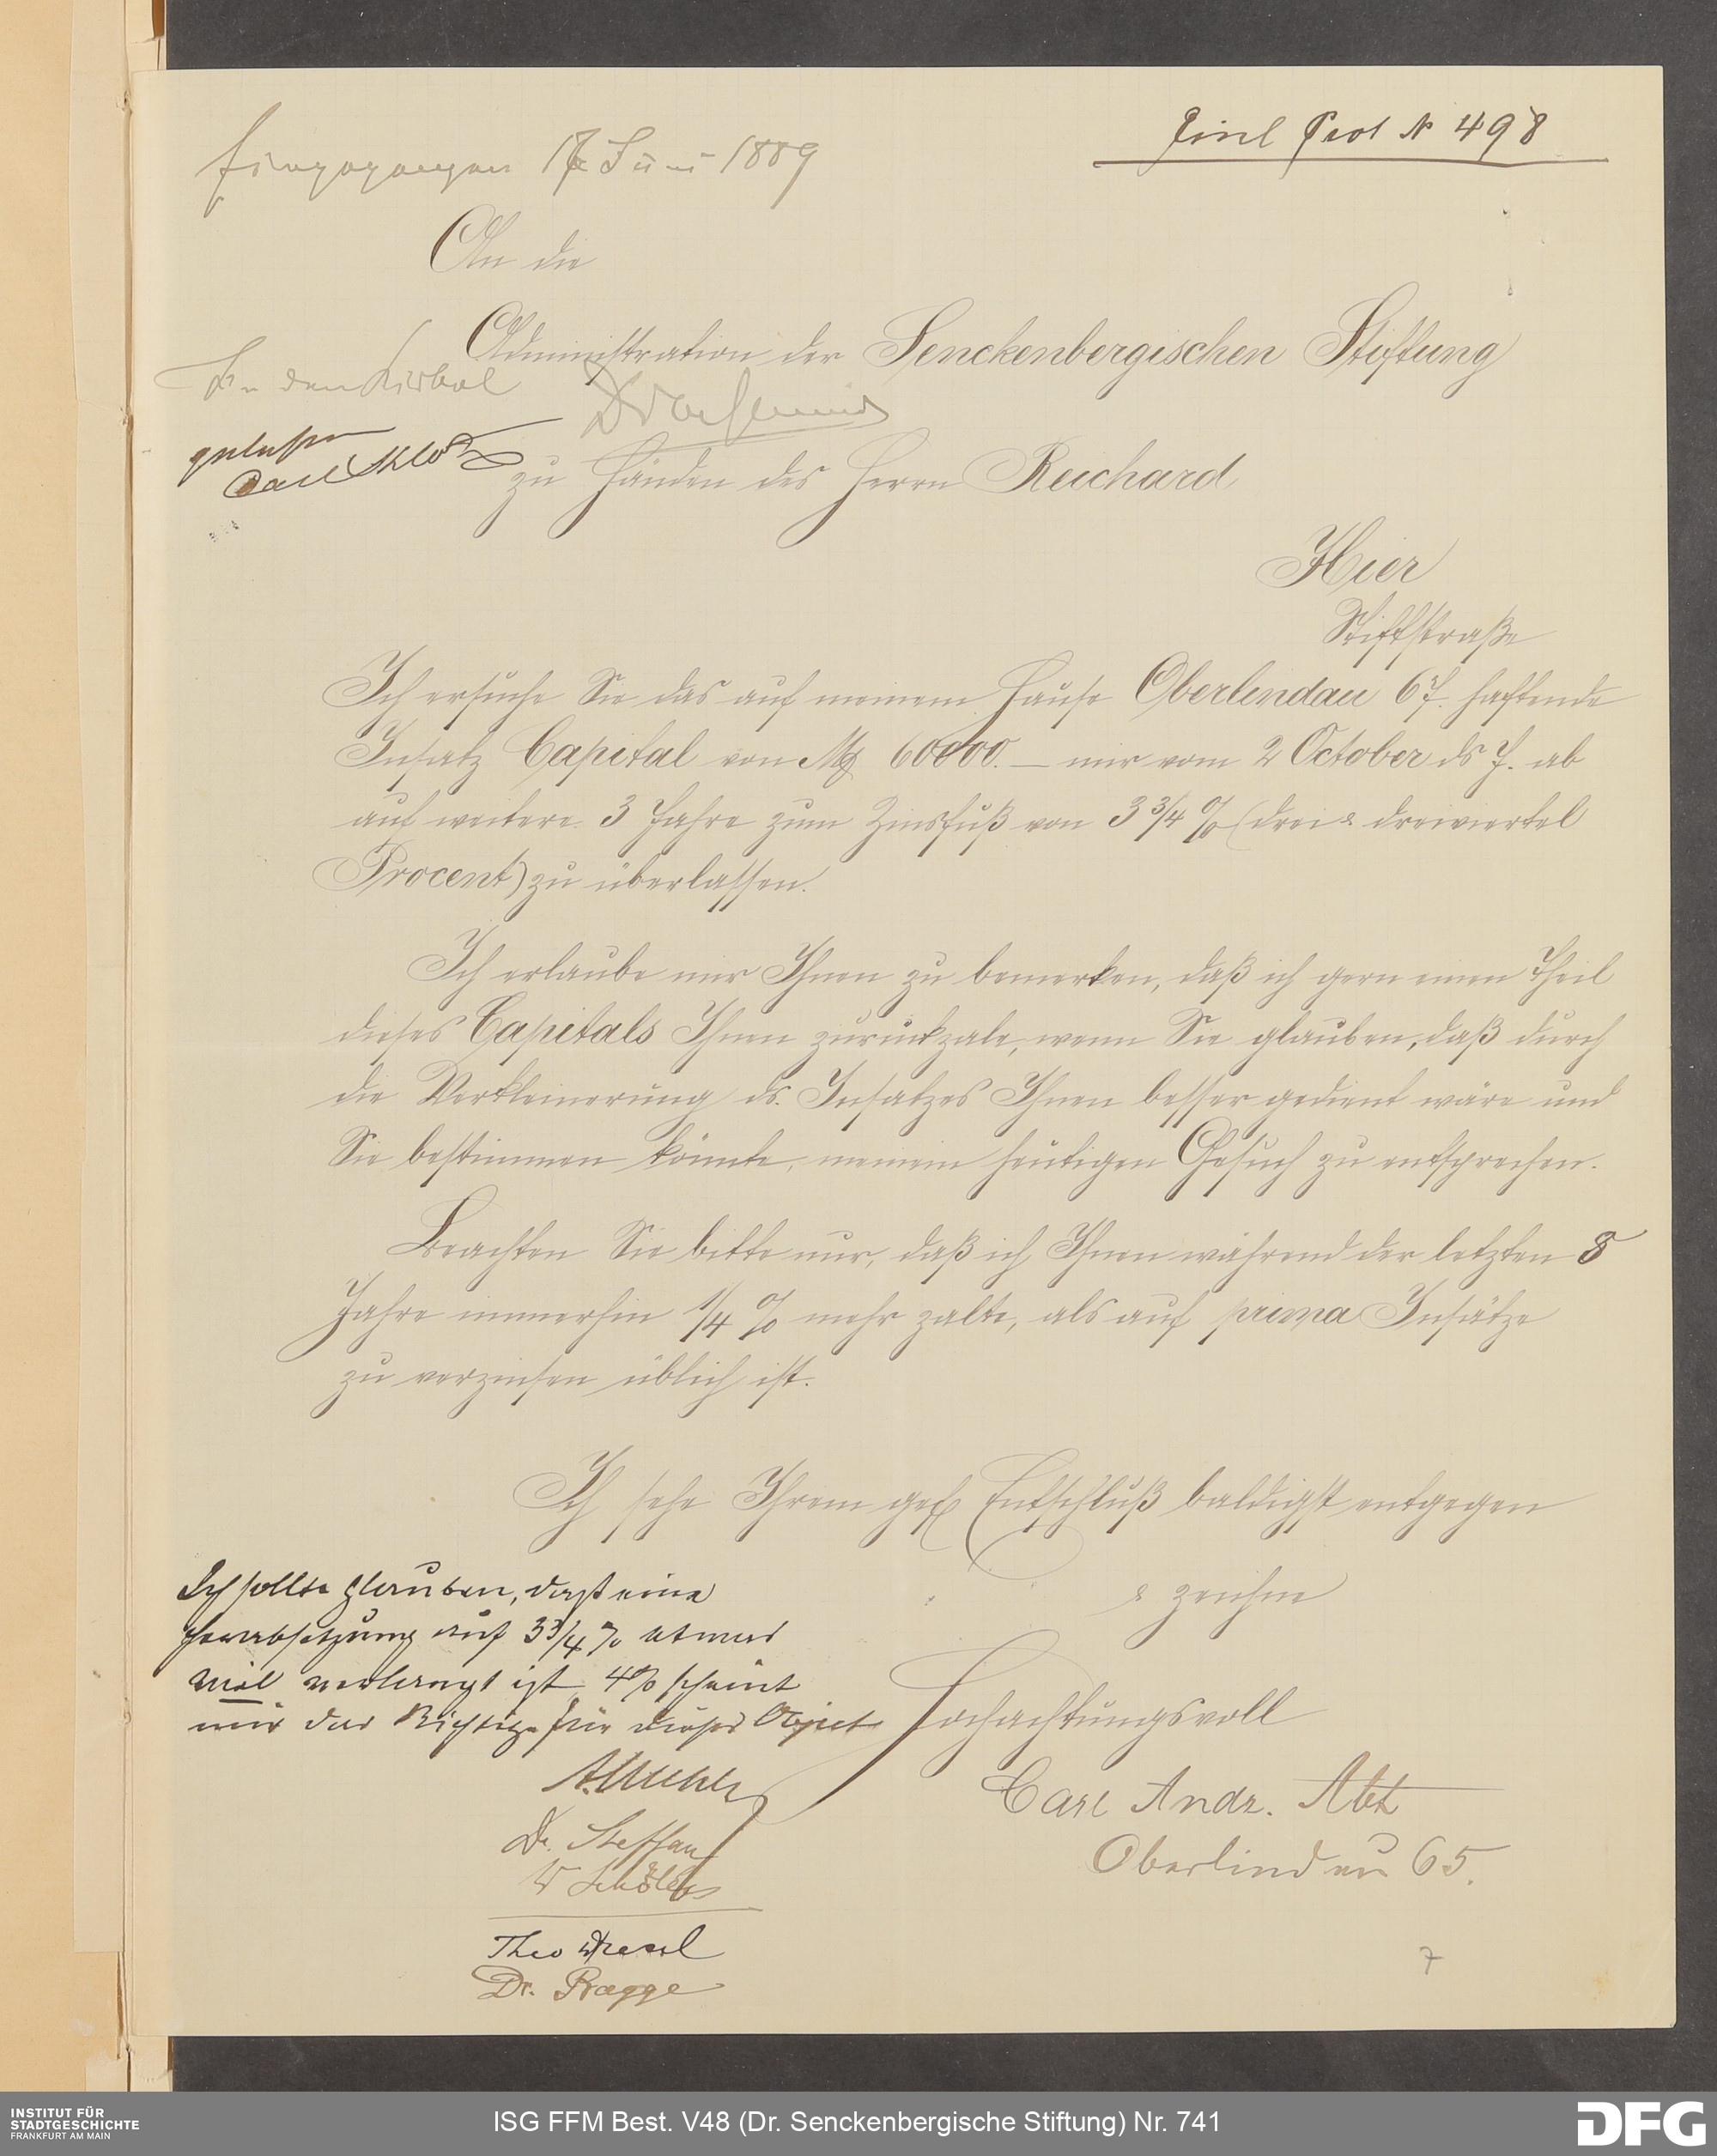 Eingegangen 17 Juni 1889
Prot N 498
An die
Administration der Senckenbergischen Stiftung
gelesen
Carl Klotz
zu Händen des Herrn Reichard
Hier
Stiftstraße
Ich ersuche Sie das auf meinem Hause Oberlindau 67. haftende
Insatz Capital von M 60000.— mir vom 2 October ds J. ab
auf weitere 3 Jahre zum Zinsfuß von 3 3/4 % (drei & dreiviertel
Procent) zu überlassen.
Ich erlaube mir Ihnen zu bemerken, daß ich gern einen Theil
dieses Capitals Ihnen zurückzale, wenn Sie glauben, daß durch
die Verkleinerung ds. Insatzes Ihnen besser gedient wäre und
Sie bestimmen könnte, meinem heutigen Gesuch zu entsprechen.
Beachten Sie bitte nur, daß ich Ihnen während der letzten 8
Jahre immerhin 1/4 % mehr zalte, als auf prima Insätze
zu verzinsen üblich ist.
Ich sehe Ihrem gefl Entschluß baldigst entgegen
& zeichne
Hochachtungsvoll
Carl Andr. Abt
Oberlindau 65.
Ich sollte glauben, daß eine
Herabsetzung auf 3 3/4 % etwas
viel verlangt ist 4% scheint
mir das Richtige für dieses Object
Dr. Steffan
Dr. Roegge
7
INSTITUT FÜR
STADTGESCHICHTE
FRANKFURT AM MAIN
ISG FFM Best. V48 (Dr. Senckenbergische Stiftung) Nr. 741
DFG